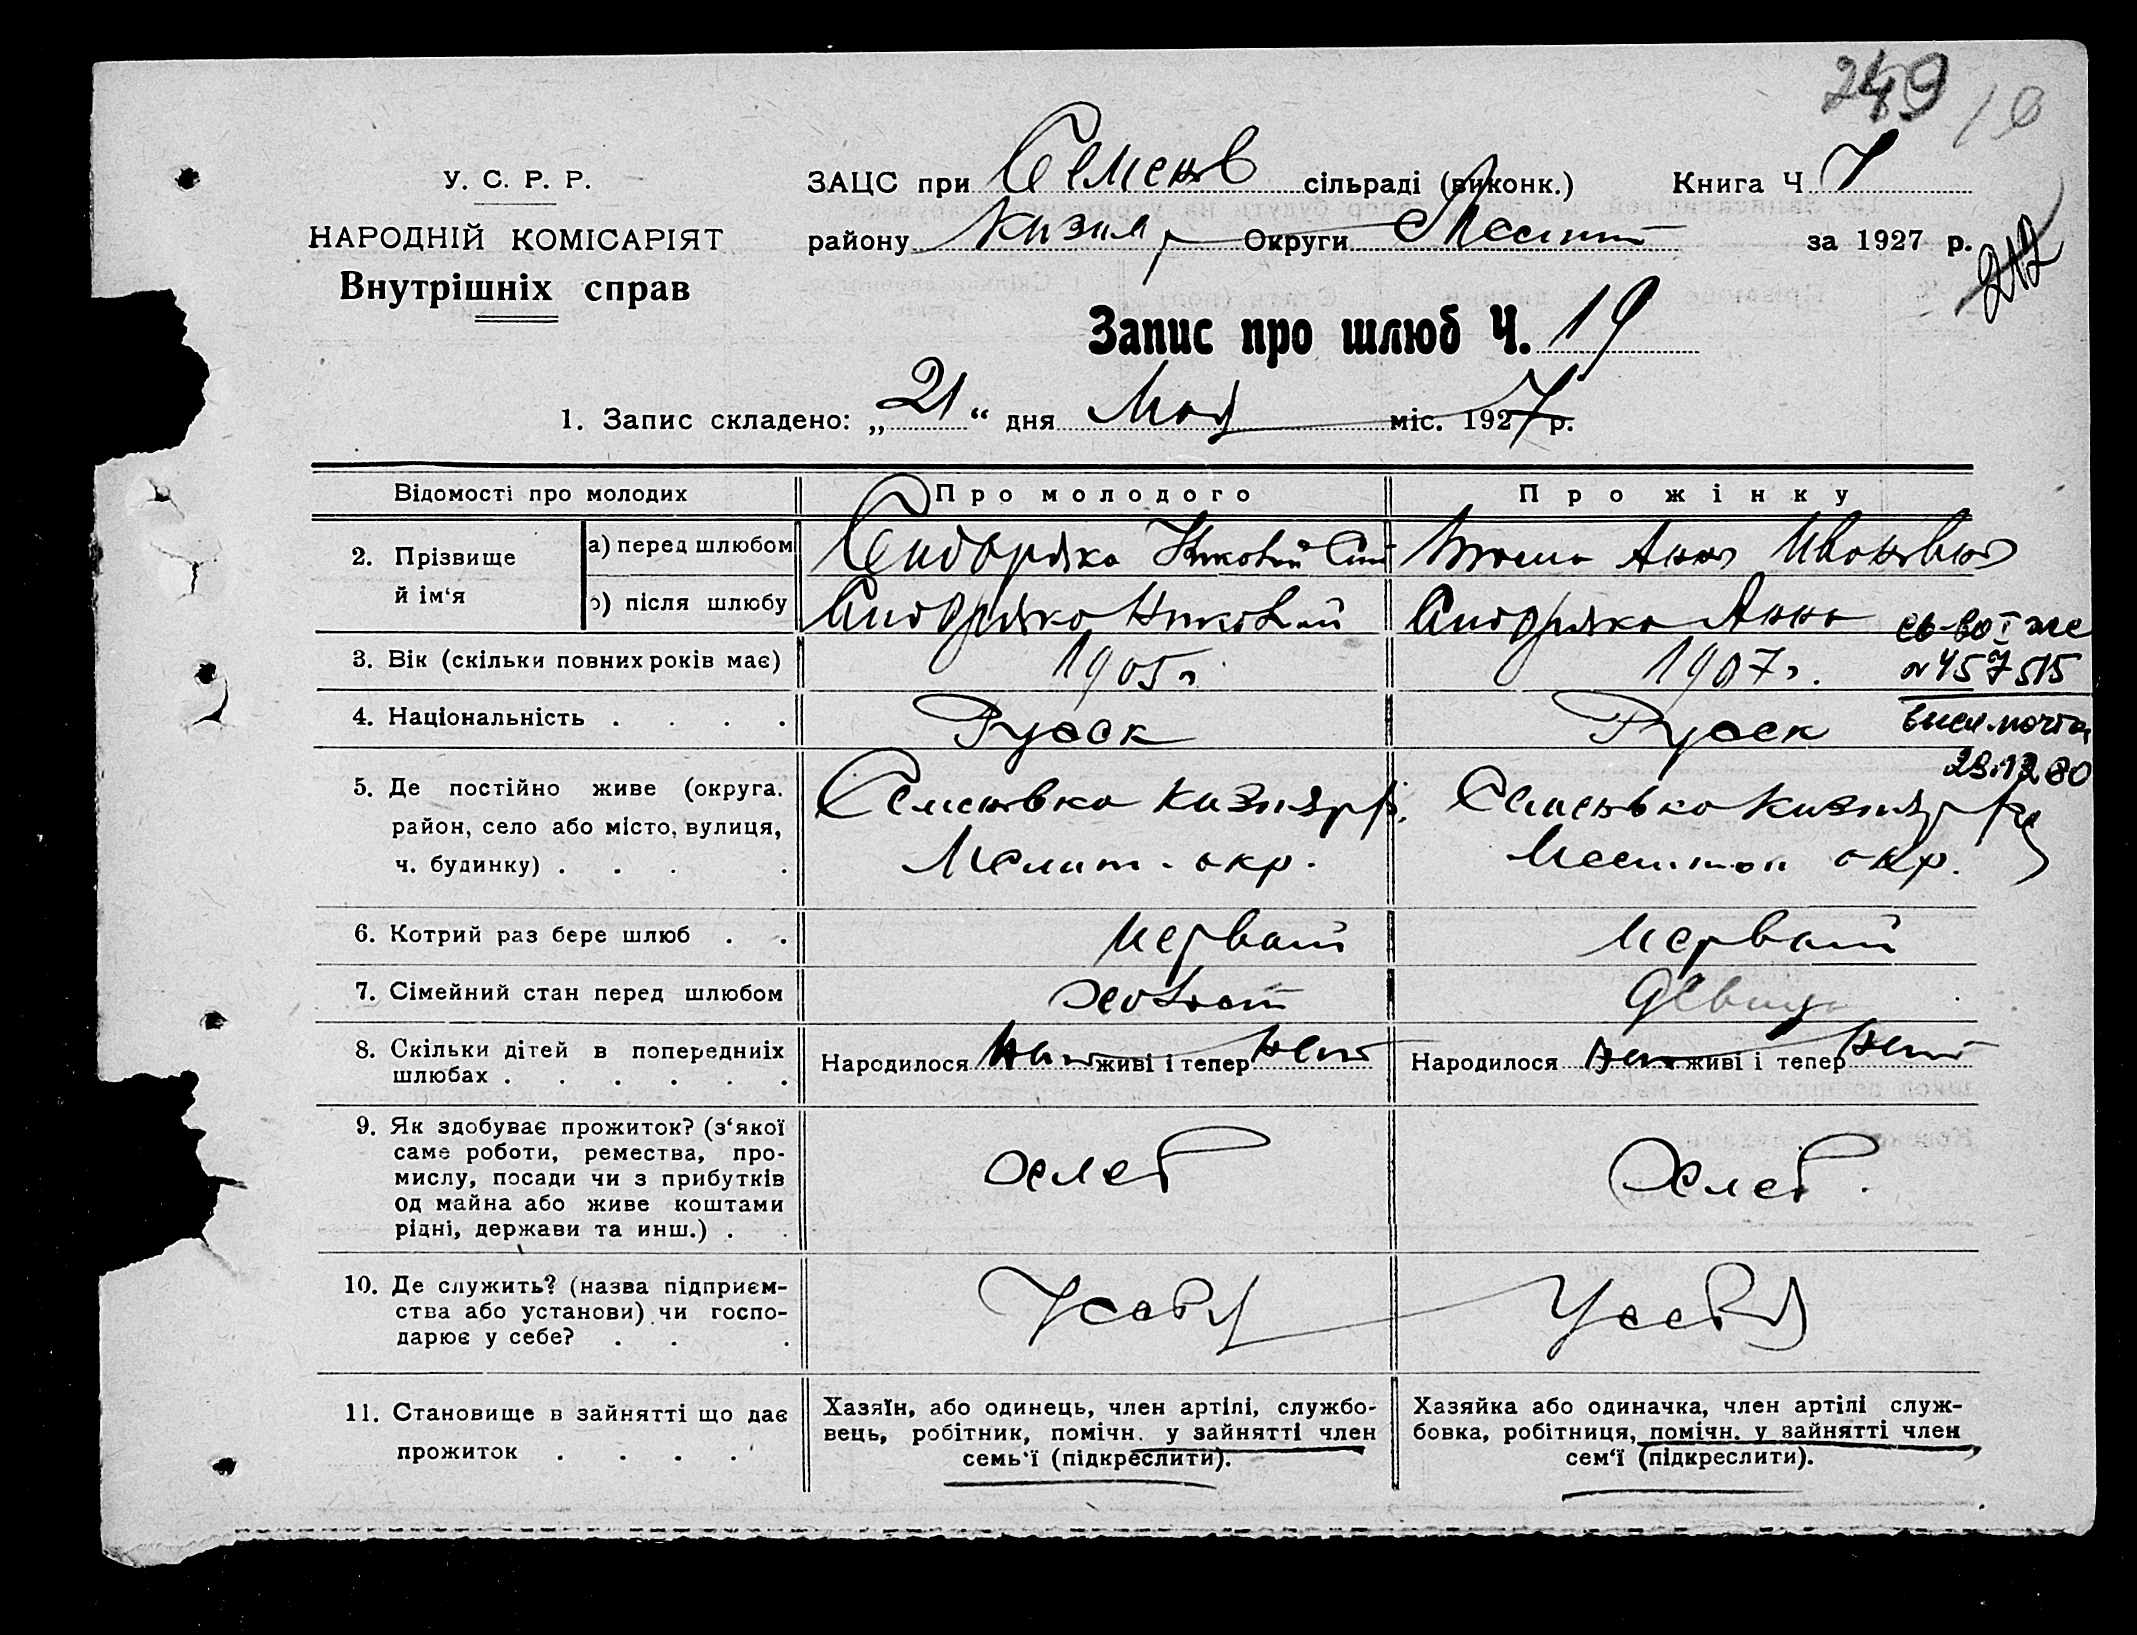 249 10
У. С. Р. Р.
НАРОДНІЙ КОМІСАРІЯТ
Внутрішніх справ
ЗАЦС при Семенов сільраді (виконк.) Книга Ч 7
району Кизил р Округи Мелит за 1927 р.
212
Запис про шлюб Ч. 19
1. Запис складено: „ 21 “ дня Мая міс. 1927 р.
Відомості про молодих Про молодого Про жінку
2. Прізвище й ім‘я
а) перед шлюбом Сидоряка Анна Ивановна
б) після шлюбу Сидоряка Сидоряка Анна
3. Вік (скільки повних років має) 1905 г. 1907 г.
св-во І же
№ 457515
высл. почтой
29.12.80
4. Національність . . . . Русск Русск
5. Де постійно живе (округа, район, село або місто, вулиця, ч. будинку) . . . .
Семеновка Кизияр р. Семеновка Кизияр р
Мелит. окр. Мелитоп окр.
6. Котрий раз бере шлюб . . первый первый
7. Сімейний стан перед шлюбом холост девица
8. Скільки дітей в попередниіх шлюбах . . . . . .
Народилося нет живі і тепер нет Народилося нет живі і тепер нет
9. Як здобуває прожиток? (з‘якої
саме роботи, ремества, про-
мислу, посади чи з прибутків
од майна або живе коштами
рідні, держави та инш.) . .
хлеб хлеб.
10. Де служить? (назва підприєм-
ства або установи) чи госпо-
дарює у себе? . . .
У себя У себя
11. Становище в зайнятті що дає
прожиток . . . .
Хазяїн, або одинець, член артілі, службо-
вець, робітник, помічн. у зайнятті член
семь‘ї (підкреслити).
Хазяйка або одиначка, член артілі служ-
бовка, робітниця, помічн. у зайнятті член
сем‘ї (підкреслити).